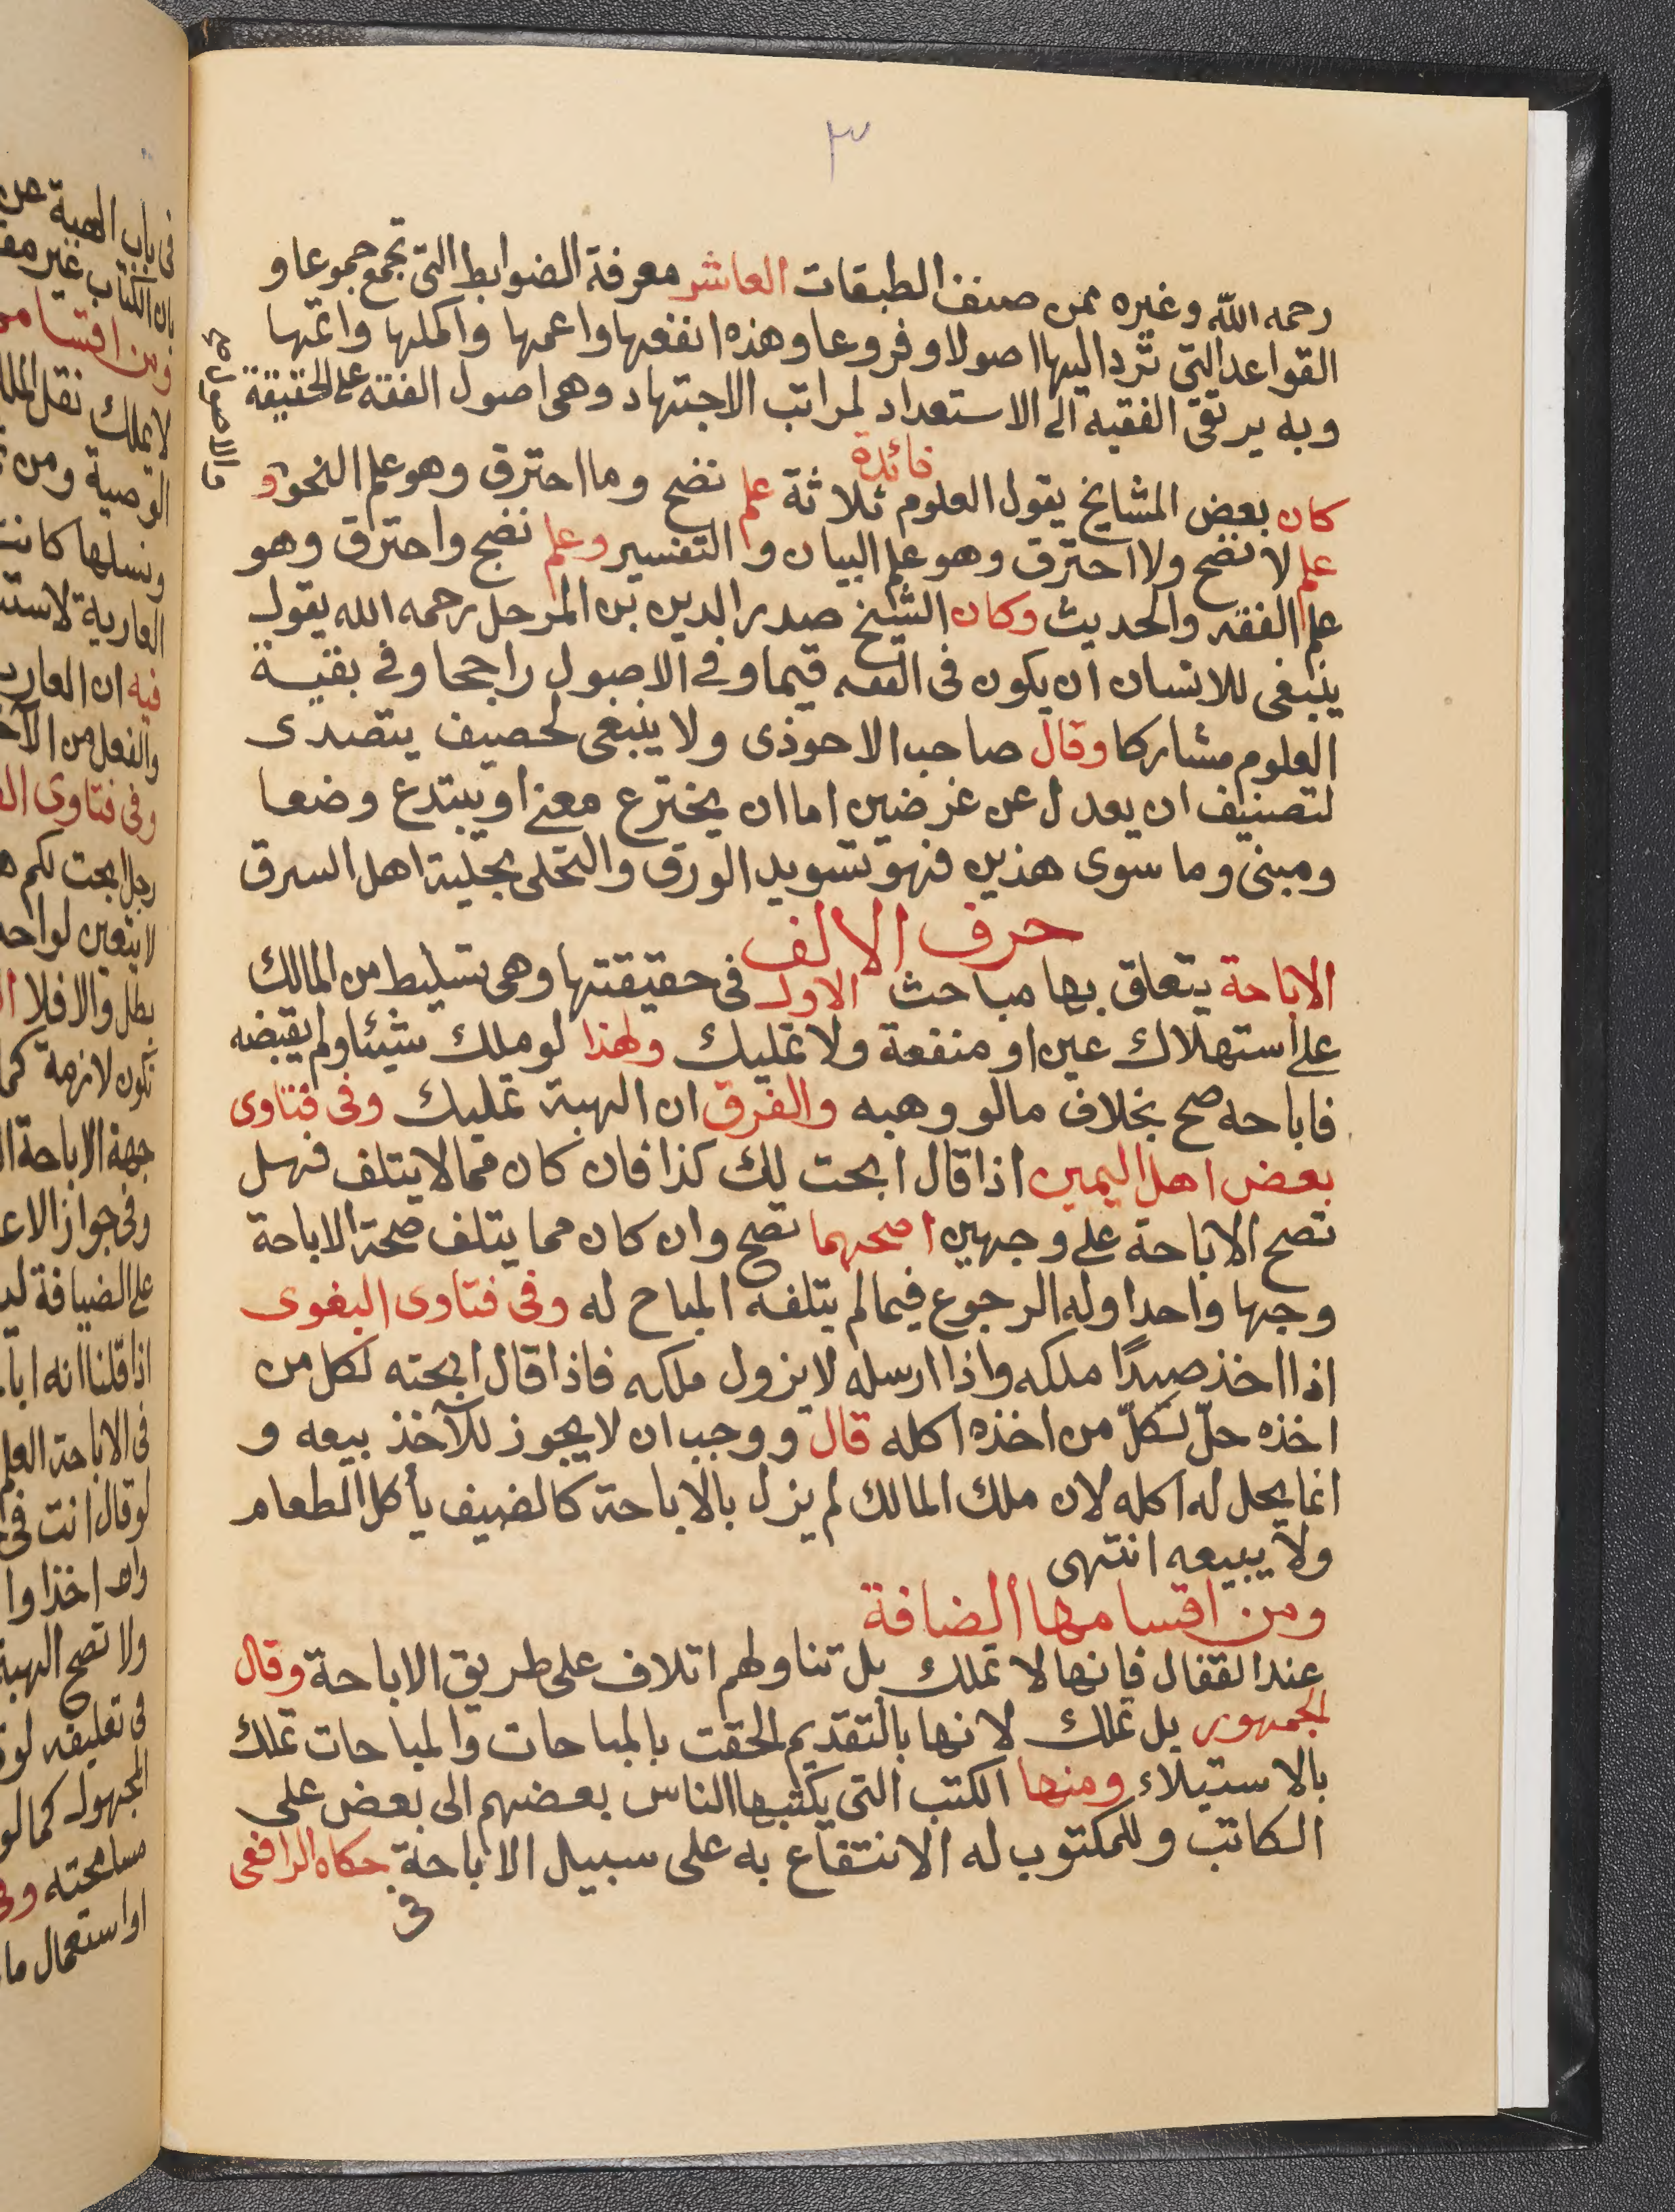 ٣
رحمه الله وغيره ممن صنف الطبقات العاشر معرفة الضوابط التى تجمع جموعا و
القواعد التى ترد اليها اصولا وفروعا وهذه انفعها واعمها واكملها واتمها
وبه يرتقى الفقيه الى الاستعداد لمراتب الاجتهاد وهى اصول الفقه على الحقيقة
والاصول صح
فائدة
كان بعض المشايخ يقول العلوم ثلاثة علم نضج وما احترق وهو علم النحو و
علم لا نضج ولا احترق وهو علم البيان والتفسير وعلم نضج واحترق وهو
علم الفقه والحديث وكان الشيخ صدر الدين بن المرحل رحمه الله يقول
ينبغى للانسان ان يكون فى الفقه قيما وفى الاصول راجحا وفى بقية
العلوم مشاركا وقال صاحب الاحوذى ولا ينبغى لحصيف يتصدى
لتصنيف ان يعدل عن غرضين اما ان يخترع معنى او يبتدع وضعا
ومبنى وما سوى هذين فهو تسويد الورق والتحلى بحلية اهل السرق
حرف الالف
الاباحة يتعلق بها مباحث الاول فى حقيقتها وهى تسليط من المالك
على استهلاك عين او منفعة ولا تمليك ولهذا لو ملك شيئا ولم يقبضه
فاباحه صح بخلاف مالو وهبه والفرق ان الهبة تمليك وفى فتاوى
بعض اهل اليمين اذا قال ابحت لك كذا فان كان مما لا يتلف فهل
تصح الاباحة على وجهين اصحهما تصح وان كان مما يتلف صحة الاباحة
وجها واحدا وله الرجوع فيما لم يتلفه المباح له وفى فتاوى البغوى
اذا اخذ صيدًا ملكه واذا ارسله لا يزول ملكه فاذا قال ابحته لكل من
اخذه حلّ لكلّ من اخذه اكله قال ووجب ان لا يجوز للآخذ بيعه و
انما يحل له اكله لان ملك المالك لم يزل بالاباحة كالضيف يأكل الطعام
ولا يبيعه انتهى
ومن اقسامها الضافة
عند القفال فإنها لا تملك بل تناولهم اتلاف على طريق الاباحة وقال
الجمهور بل تملك لانها بالتقديم الحقت بالمباحات والمباحات تملك
بالاستيلاء ومنها الكتب التى يكتبها الناس بعضهم الى بعض على
الكاتب وللمكتوب له الانتفاع به على سبيل الاباحة حكاه الرافعى
فى